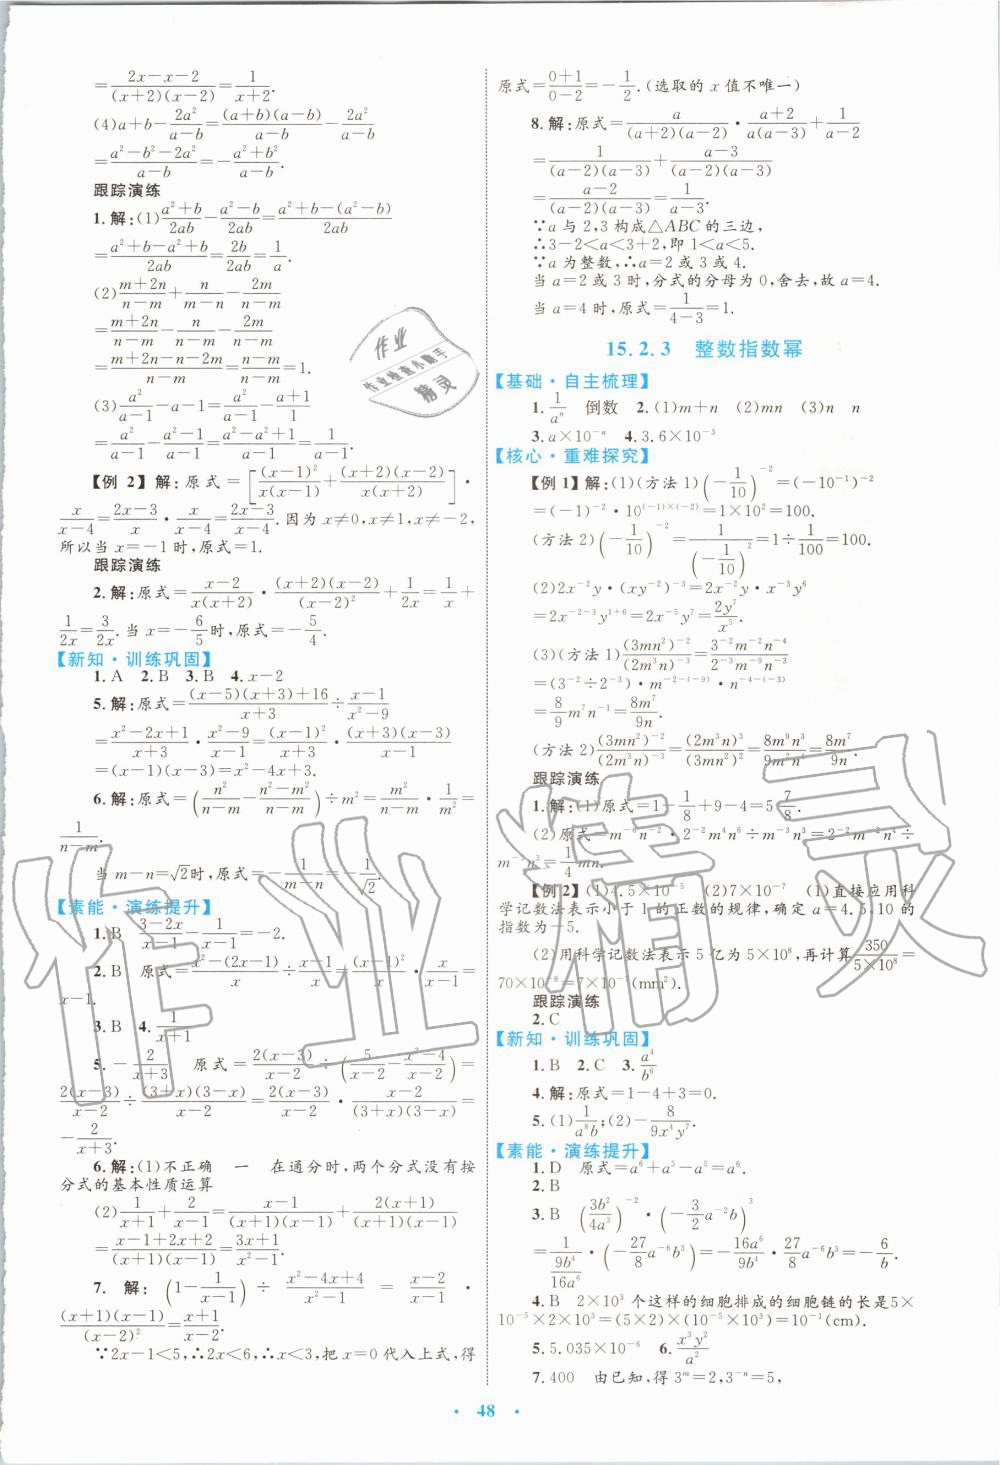 =\frac{2x-x-2}{(x+2)(x-2)}=\frac{1}{x+2}.
(4)a+b-\frac{2a²}{a-b}=\frac{(a+b)(a-b)}{a-b}-\frac{2a²}{a-b}
=\frac{a²-b²-2a²}{a-b}=-\frac{a²+b²}{a-b}.
跟踪演练
1.解:(1)\frac{a²+b}{2ab}-\frac{a²-b}{2ab}=\frac{a²+b-(a²-b)}{2ab}
=\frac{a²+b-a²+b}{2ab}=\frac{2b}{2ab}=\frac{1}{a}.
(2)\frac{m+2n}{n-m}+\frac{n}{m-n}-\frac{2m}{n-m}
=\frac{m+2n}{n-m}-\frac{n}{n-m}-\frac{2m}{n-m}
=\frac{m+2n-n-2m}{n-m}=\frac{n-m}{n-m}=1.
(3)\frac{a²}{a-1}-a-1=\frac{a²}{a-1}-\frac{a+1}{1}
=\frac{a²}{a-1}-\frac{a²-1}{a-1}=\frac{a²-a²+1}{a-1}=\frac{1}{a-1}.
【例 2】 解:原式=[\frac{(x-1)²}{x(x-1)}+\frac{(x+2)(x-2)}{x(x+2)}]·
\frac{x}{x-4}=\frac{2x-3}{x}·\frac{x}{x-4}=\frac{2x-3}{x-4}.因为 x≠0,x≠1,x≠-2,
所以当 x=-1 时,原式=1.
跟踪演练
2.解:原式=\frac{x-2}{x(x+2)}·\frac{(x+2)(x-2)}{(x-2)²}+\frac{1}{2x}=\frac{1}{x}+
\frac{1}{2x}=\frac{3}{2x}.当 x=-\frac{6}{5}时,原式=-\frac{5}{4}.
【新知·训练巩固】
1.A 2.B 3.B 4.x-2
5.解:原式=\frac{(x-5)(x+3)+16}{x+3}÷\frac{x-1}{x²-9}
=\frac{x²-2x+1}{x+3}·\frac{x²-9}{x-1}=\frac{(x-1)²}{x+3}·\frac{(x+3)(x-3)}{x-1}
=(x-1)(x-3)=x²-4x+3.
6.解:原式=(\frac{n²}{n-m}-\frac{n²-m²}{n-m})÷m²=\frac{m²}{n-m}·\frac{1}{m²}=
\frac{1}{n-m}.
当 m-n=√2时,原式=-\frac{1}{m-n}=-\frac{1}{√2}.
【素能·演练提升】
1.B \frac{3-2x}{x-1}-\frac{1}{x-1}=-2.
2.B 原式=\frac{x²-(2x-1)}{x}÷\frac{x-1}{x}=\frac{(x-1)²}{x}·\frac{x}{x-1}=
x-1.
3.B 4.\frac{1}{x+1}
5.-\frac{2}{x+3} 原式=\frac{2(x-3)}{x-2}÷(\frac{5}{x-2}-\frac{x²-4}{x-2})=
\frac{2(x-3)}{x-2}÷\frac{(3+x)(3-x)}{x-2}=\frac{2(x-3)}{x-2}·\frac{x-2}{(3+x)(3-x)}=
-\frac{2}{x+3}.
6.解:(1)不正确 一 在通分时,两个分式没有按
分式的基本性质运算
(2)\frac{1}{x+1}+\frac{2}{x-1}=\frac{x-1}{(x+1)(x-1)}+\frac{2(x+1)}{(x+1)(x-1)}
=\frac{x-1+2x+2}{(x+1)(x-1)}=\frac{3x+1}{x²-1}.
7. 解: (1-\frac{1}{x-1}) ÷ \frac{x²-4x+4}{x²-1} = \frac{x-2}{x-1}·
\frac{(x+1)(x-1)}{(x-2)²}=\frac{x+1}{x-2}.
∵2x-1<5,∴2x<6,∴x<3,把 x=0 代入上式,得
原式=\frac{0+1}{0-2}=-\frac{1}{2}.(选取的 x 值不唯一)
8.解:原式=\frac{a}{(a+2)(a-2)}·\frac{a+2}{a(a-3)}+\frac{1}{a-2}
=\frac{1}{(a-2)(a-3)}+\frac{a-3}{(a-2)(a-3)}
=\frac{a-2}{(a-2)(a-3)}=\frac{1}{a-3}.
∵a 与 2,3 构成△ABC 的三边,
∴3-2<a<3+2,即 1<a<5.
∵a 为整数,∴a=2 或 3 或 4.
当 a=2 或 3 时,分式的分母为 0,舍去,故 a=4.
当 a=4 时,原式=\frac{1}{4-3}=1.
15.2.3 整数指数幂
【基础·自主梳理】
1.\frac{1}{aⁿ} 倒数 2.(1)m+n (2)mn (3)n n
3.a×10⁻ⁿ 4.3.6×10⁻³
【核心·重难探究】
【例 1】解:(1)(方法 1)(-\frac{1}{10})⁻²=(-10⁻¹)⁻²
=(-1)⁻²·10^{(-1)×(-2)}=1×10²=100.
(方法 2)(-\frac{1}{10})⁻²=\frac{1}{(-\frac{1}{10})²}=1÷\frac{1}{100}=100.
(2)2x⁻²y·(xy⁻²)⁻³=2x⁻²y·x⁻³y⁶
=2x⁻²⁻³y¹⁺⁶=2x⁻⁵y⁷=\frac{2y⁷}{x⁵}.
(3)(方法 1)\frac{(3mn²)⁻²}{(2m³n)⁻³}=\frac{3⁻²m⁻²n⁻⁴}{2⁻³m⁻⁹n⁻³}
=(3⁻²÷2⁻³)·m^{-2-(-9)}·n^{-4-(-3)}=
\frac{8}{9}m⁷n⁻¹=\frac{8m⁷}{9n}.
(方法 2)\frac{(3mn²)⁻²}{(2m³n)⁻³}=\frac{(2m³n)³}{(3mn²)²}=\frac{8m⁹n³}{9m²n⁴}=\frac{8m⁷}{9n}.
跟踪演练
1.解:(1)原式=1-\frac{1}{8}+9-4=5\frac{7}{8}.
(2)原式=m⁻⁶n⁻²·2⁻²m⁴n⁶÷m⁻³n³=2⁻²m⁻²n⁴÷
m⁻³n³=\frac{1}{4}mn.
【例2】(1)4.5×10⁻⁵ (2)7×10⁻⁷ (1)直接应用科
学记数法表示小于 1 的正数的规律,确定 a=4.5,10 的
指数为-5.
(2)用科学记数法表示 5 亿为 5×10⁸,再计算\frac{350}{5×10⁸}=
70×10⁻⁸=7×10⁻⁷(mm²).
跟踪演练
2.C
【新知·训练巩固】
1.B 2.C 3.\frac{a⁴}{b⁶}
4.解:原式=1-4+3=0.
5.(1)\frac{1}{a⁸b};(2)-\frac{8}{9x⁴y⁷}.
【素能·演练提升】
1.D 原式=a⁶+a⁵-a⁵=a⁶.
2.B
3.B (\frac{3b²}{4a³})⁻²·(-\frac{3}{2}a⁻²b)³
=\frac{1}{\frac{9b⁴}{16a⁶}}·(-\frac{27}{8}a⁻⁶b³)=-\frac{16a⁶}{9b⁴}·\frac{27}{8}a⁻⁶b³=-\frac{6}{b}.
4.B 2×10³ 个这样的细胞排成的细胞链的长是5×
10⁻⁵×2×10³=(5×2)×(10⁻⁵×10³)=10⁻¹(cm).
5.5.035×10⁻⁶ 6.\frac{x³y²}{a²}
7.400 由已知,得 3ᵐ=2,3⁻ⁿ=5,
· 48 ·
作业
作业检查小助手
精灵
作业精灵